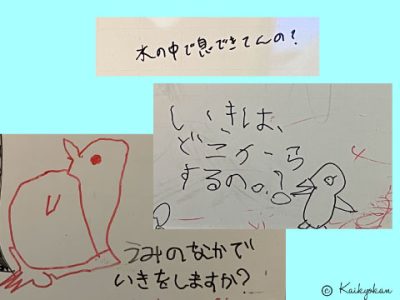 水の中で息できてんの？
いきは、
どこから
するの。？
うみのなかで
いきをしますか？
© Kaikyokan